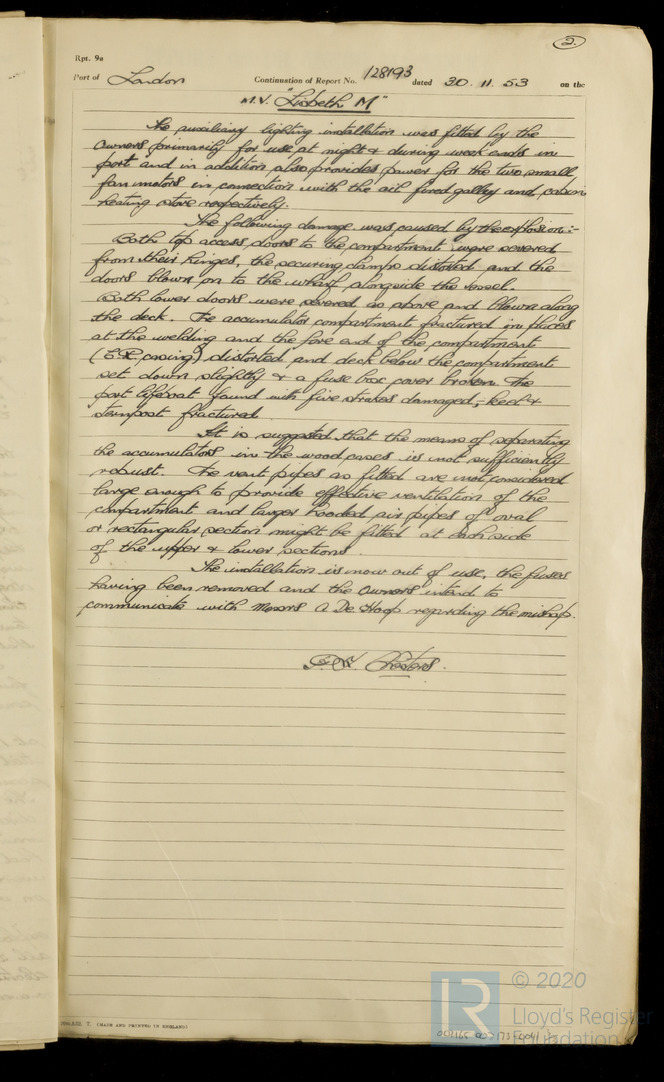 2.
Rpt. 9a
Port of London Continuation of Report No. 128193 dated 30. 11. 53 on the
M.V. "Lisbeth M"
The auxiliary lighting installation was fitted by the
Owners primarily for use at night & during week ends in
port and in addition also provides power for the two small
fan motors in connection with the oil fired galley and cabin
heating stove respectively.
The following damage was caused by the explosion:-
Both top access doors to the compartment were severed
from their hinges, the securing clamps distorted and the
doors blown on to the wharf alongside the vessel.
Both lower doors were severed as above and blown along
the deck. The accumulator compartment fractured in places
at the welding and the fore end of the compartment
(E.R. casing) distorted and deck below the compartment
set down slightly & a fuse box cover broken. The
port lifeboat found with five strakes damaged, keel &
sternpost fractured.
It is suggested that the means of separating
the accumulators in the wood cases is not sufficiently
robust. The vent pipes as fitted are not considered
large enough to provide effective ventilation of the
compartment and larger hooded air pipes of oval
or rectangular section might be fitted at each side
of the upper & lower sections.
The installation is now out of use, the fuses
having been removed and the Owners intend to
communicate with Messrs A De Hoop regarding the mishap.
(MADE AND PRINTED IN ENGLAND)
© 2020
LR
Lloyd's Register
Foundation